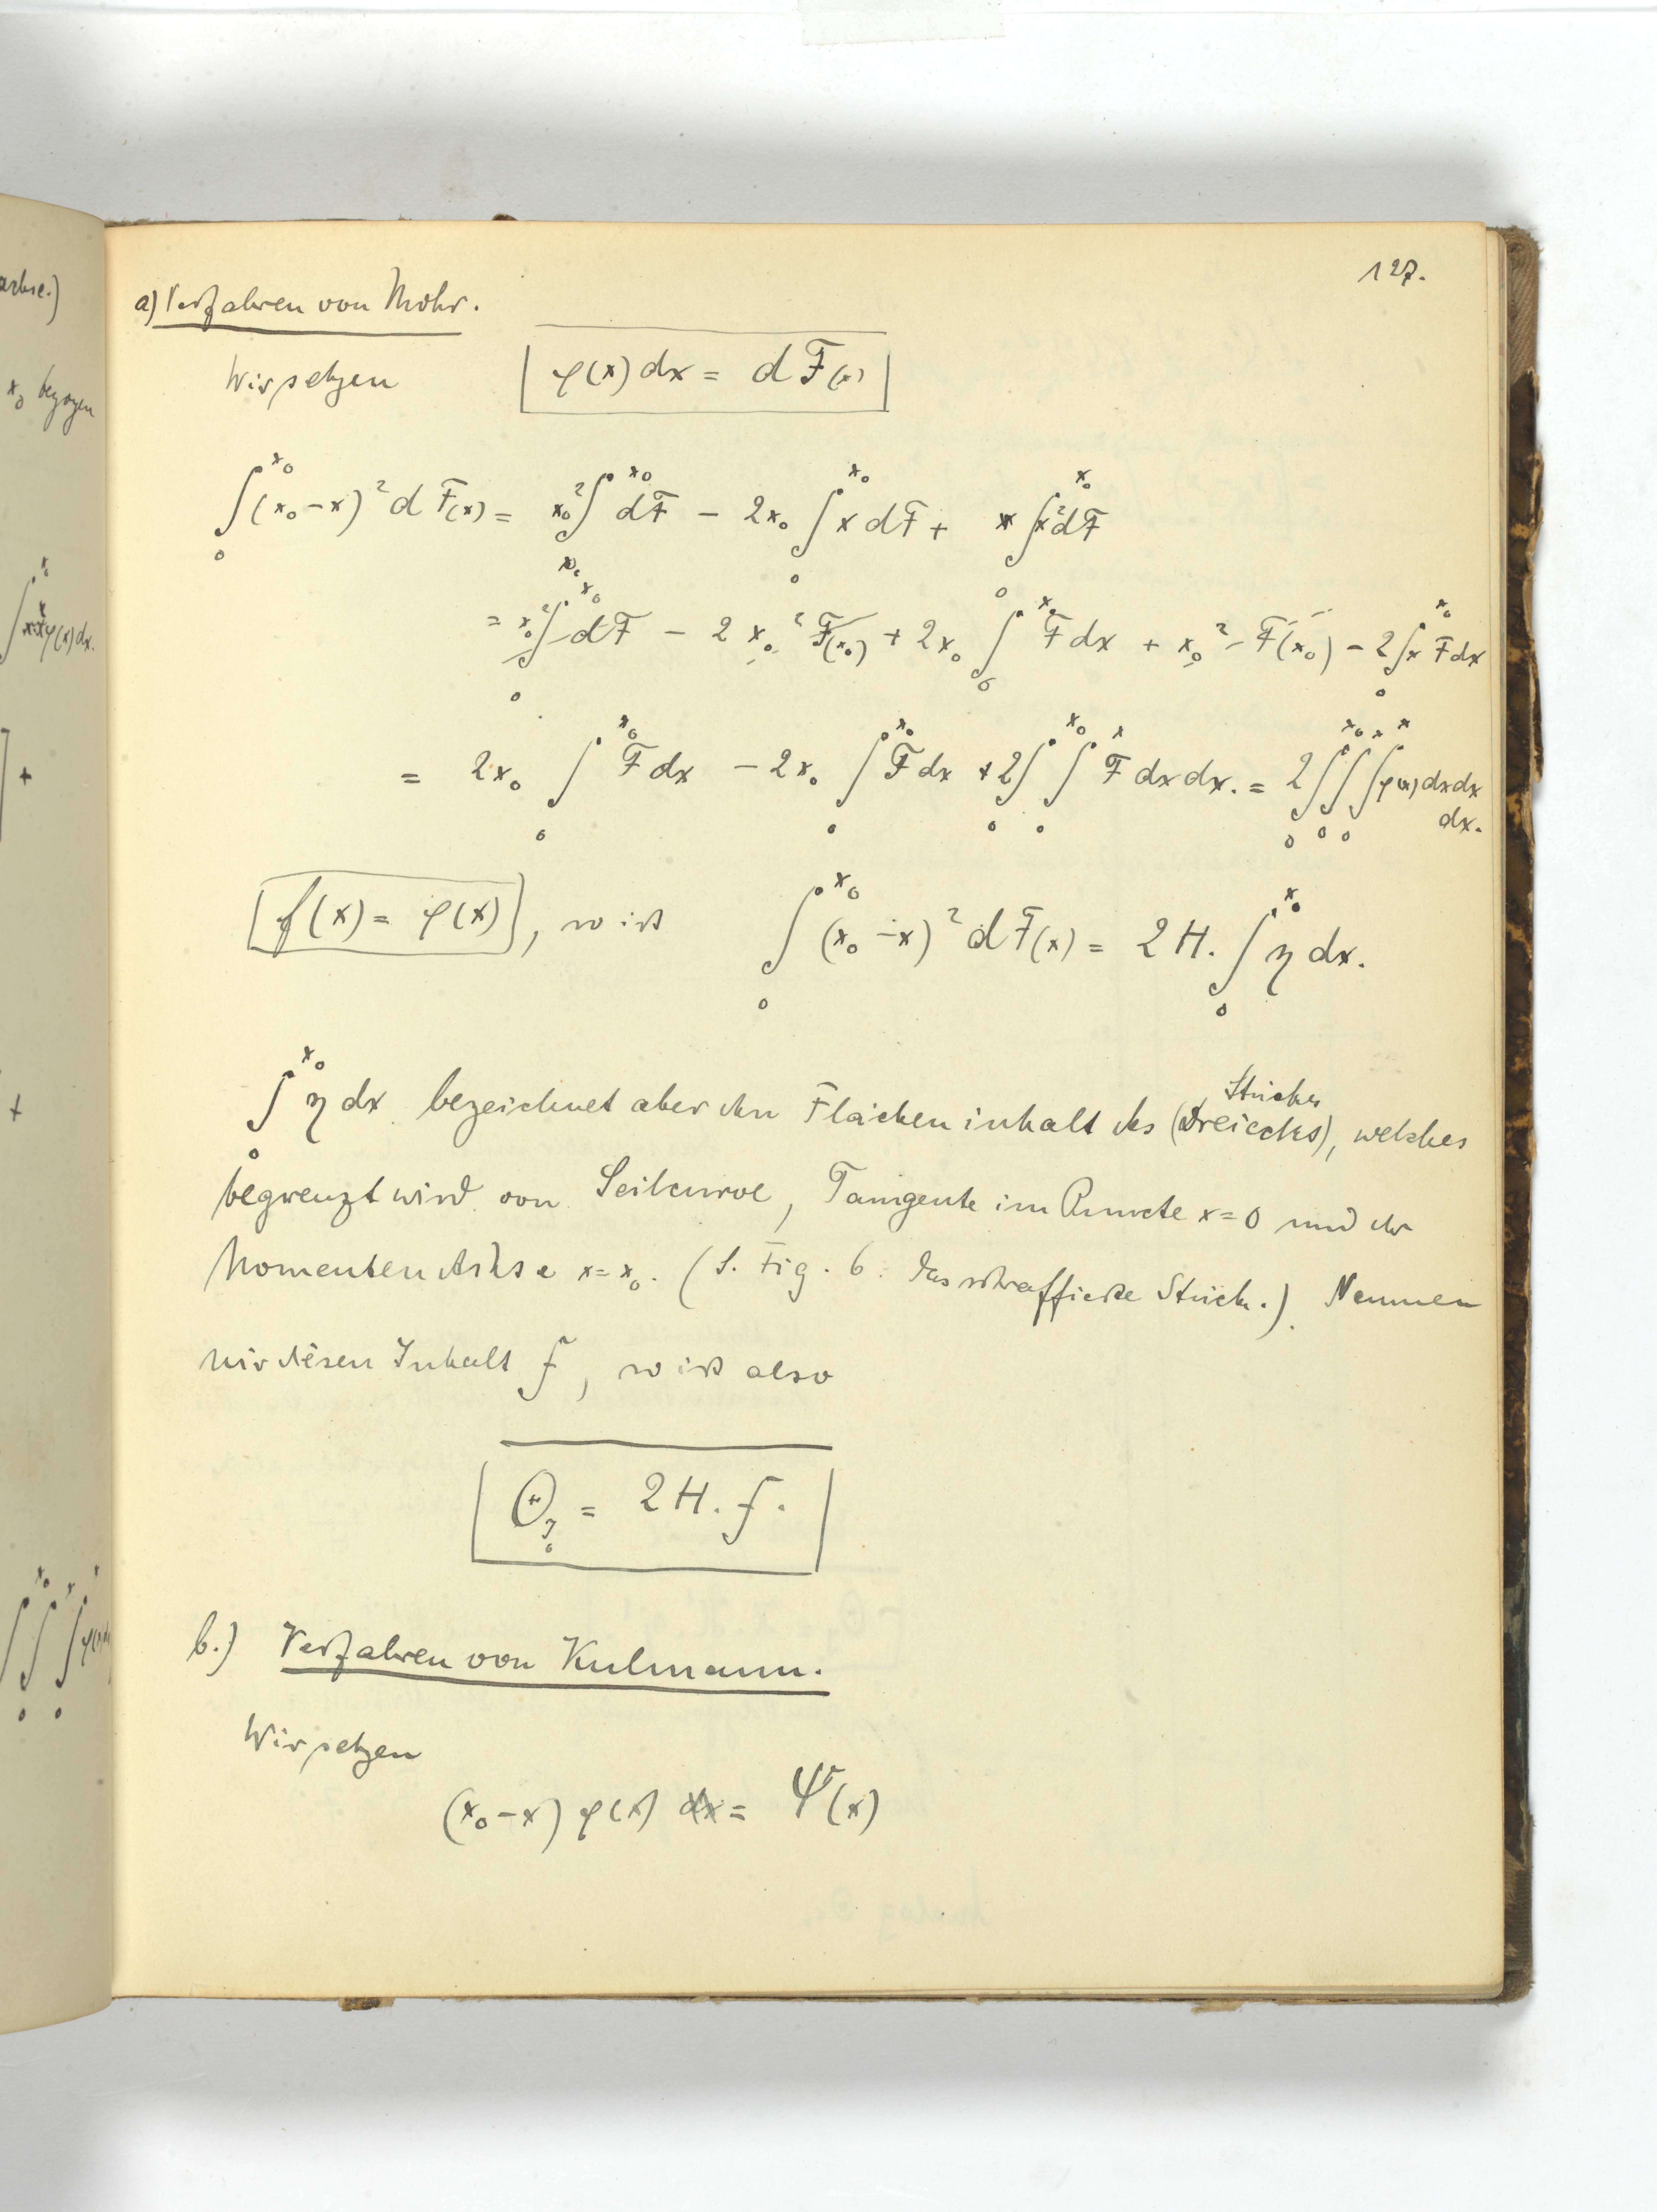 127.
a) Verfahren von Mohr.
Wir setzen φ(x) dx = d F(x)
∫₀^{x₀} (x₀-x)² d F(x) = x₀² ∫^{x₀} dF - 2x₀ ∫₀^{x₀} x dF + ∫₀^{x₀} x² dF
= x₀² ∫₀^{x₀} dF - 2 x₀² F(x₀) + 2x₀ ∫₀^{x₀} F dx + x₀² F(x₀) - 2 ∫₀^{x₀} x F dx
= 2x₀ ∫₀^{x₀} F dx - 2x₀ ∫₀^{x₀} F dx + 2 ∫₀^{x₀} ∫₀^{x} F dx dx. = 2 ∫₀^{x₀} ∫₀^{x} ∫₀^{x} φ(x) dx dx
dx.
f(x) = φ(x), so ist ∫₀^{x₀} (x₀-x)² d F(x) = 2 H. ∫₀^{x₀} η dx.
∫₀^{x₀} η dx bezeichnet aber den Flächeninhalt des (Dreiecks), welches
Stückes
begrenzt wird von Seilcurve, Tangente im Puncte x=0 und der
MomentenAchse x=x₀. (S. Fig. 6. das schraffierte Stück.). Nennen
wir diesen Inhalt f, so ist also
Θ = 2 H. f.
b.) Verfahren von Kulmann.
Wir setzen
(x₀-x) φ(x) dx = Ψ(x)
achse.)
x₀ bezogen
φ(x) dx.
+
+